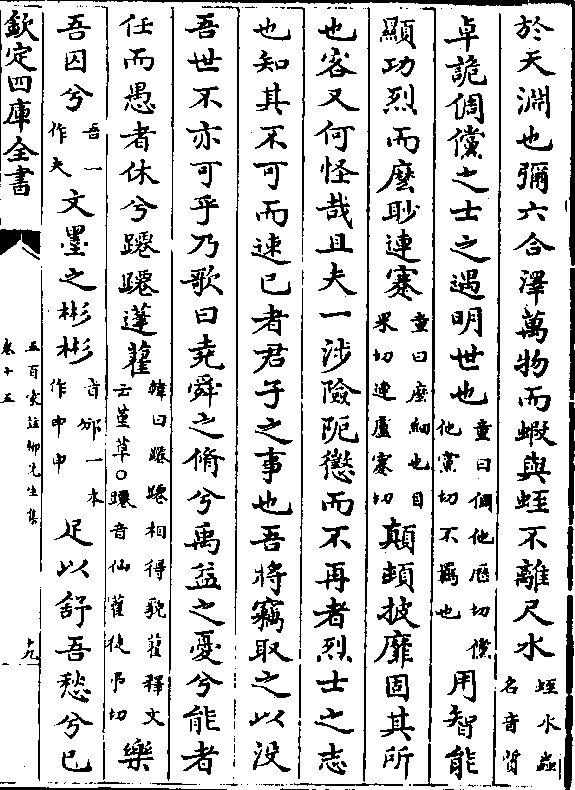 於天淵也彌六合澤萬物而蝦與蛭不離尺水蛭水蟲名音質
卓詭倜儻之士之遇明世也童曰倜他厯切儻他黨切不羈也用智能
顯功烈而麽眇連蹇童曰麽細也目果切連盧蹇切顛頼披靡固其所
也客又何怪哉且夫一涉險阨懲而不再者烈士之志
也知其不可而速已者君子之事也吾將竊取之以没
吾世不亦可乎乃歌曰堯舜之脩兮禹益之憂兮能者
任而愚者休兮躚躚蓬藋韓曰躚躚相得貌藋釋文云堇草○躚音仙藋徒弔切樂
吾囚兮吾一作夫文墨之彬彬音邠一本作申申足以舒吾愁兮已
欽定四庫全書
五百家註柳先生集
卷十五
十九